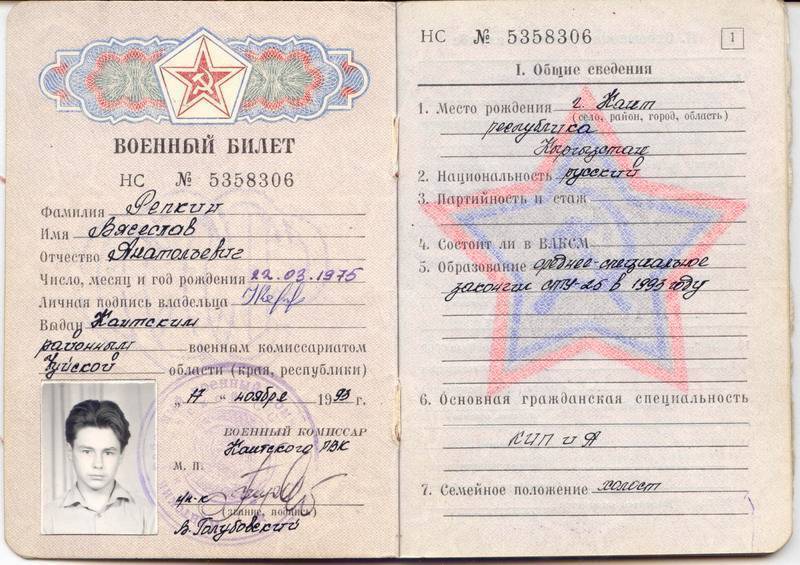 ВОЕННЫЙ БИЛЕТ
НС № 5358306
Фамилия Репкин
Имя Вячеслав
Отчество Анатольевич
Число, месяц и год рождения 22.03.1975
Личная подпись владельца
Выдан Кантским
районным военным комиссариатом
Чуйской области (края, республики)
„17" ноября 1993 г.
ВОЕННЫЙ КОМИССАР
Кантского РВК
М. П.
(звание, подпись)
В. Голубовский
НС № 5358306
1
I. Общие сведения
1. Место рождения г. Кант
(село, район, город, область)
республика
Кыргызстан
2. Национальность русский
3. Партийность и стаж
4. Состоит ли в ВЛКСМ
5. Образование средне-специальное
закончил СПТУ-25 в 1993 году
6. Основная гражданская специальность
КИП и А
7. Семейное положение холост